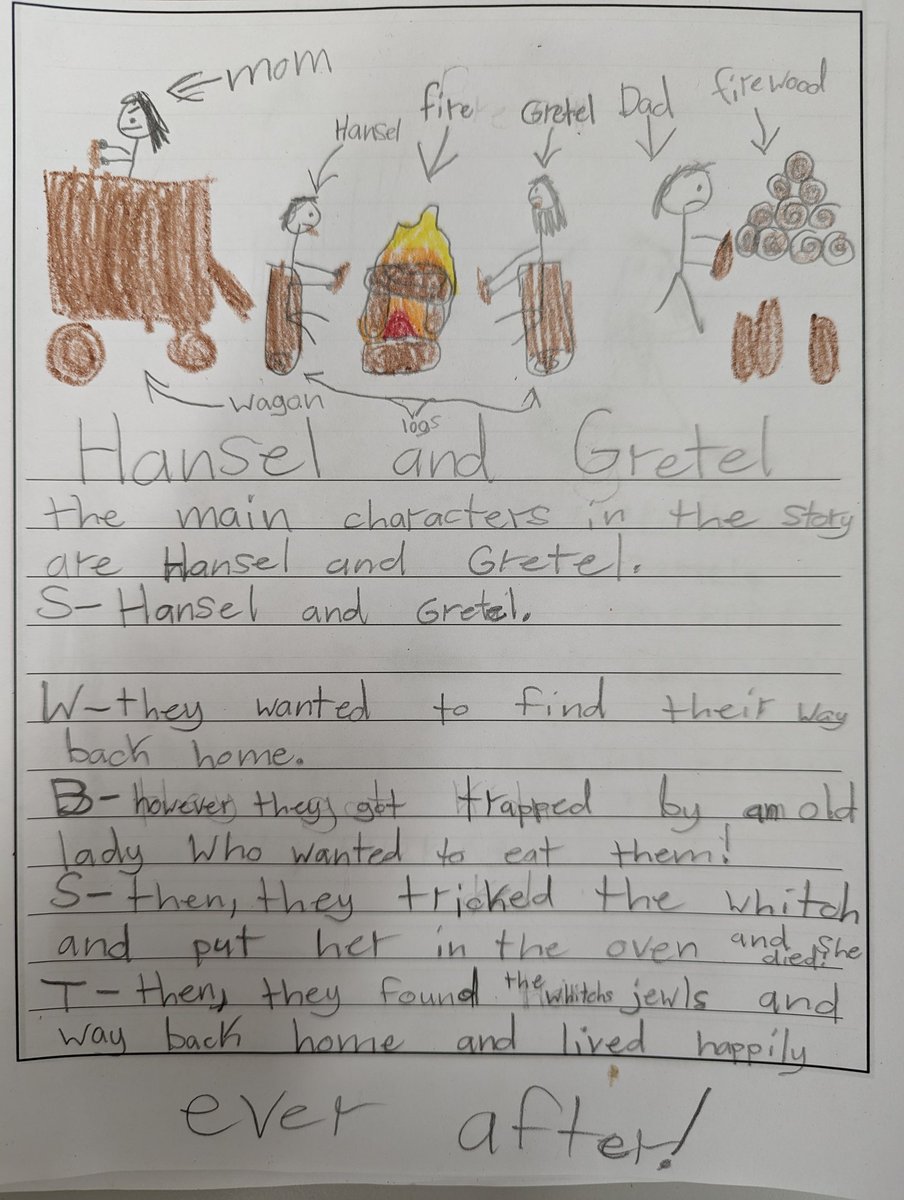 mom
Hansel
fire
Gretel
Dad
firewood
wagan
logs
Hansel and Gretel
the main characters in the story
are Hansel and Gretel.
S- Hansel and Gretel.
W- they wanted to find their way
back home.
B- however they got trapped by an old
lady Who wanted to eat them!
S- then, they tricked the whitch
and put her in the oven and she
died!
T- then, they found the whitchs jewls and
way back home and lived happily
ever after!